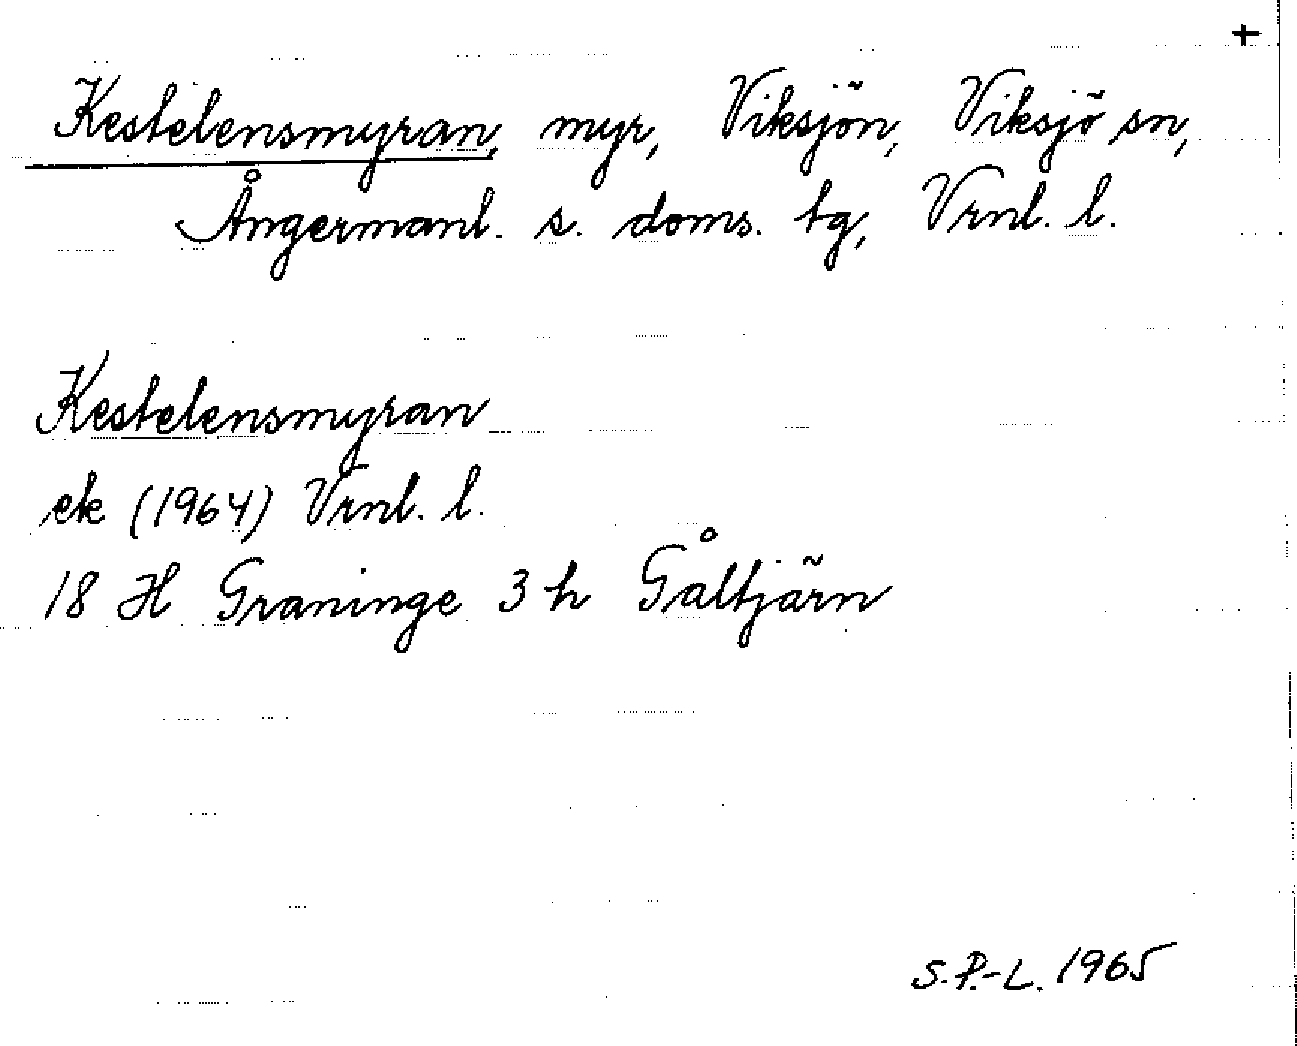 +
Kestelensmyran, myr, Viksjön, Viksjö sn,
Ångermanl. s. doms. tg, Vrnl. l.
Kestelensmyran
ek (1964) Vrnl. l.
18 H Graninge 3 h Gåltjärn
S.P.-L. 1965